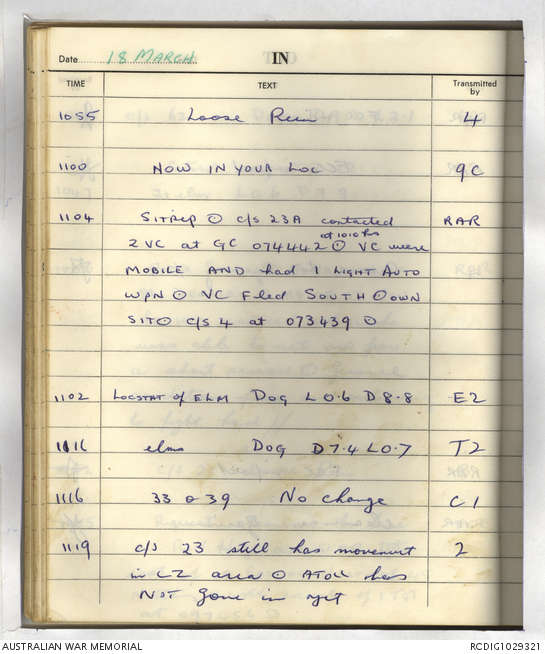 Date 18 MARCH IN
TIME TEXT Transmitted by
1055 Loose Run 4
1100 NOW IN YOUR LOC 9C
1104 SITREP ⊙ C/S 23A contacted RAR
at 1010 hrs
2 VC at GC 074442 ⊙ VC were
MOBILE AND had 1 LIGHT AUTO
WPN ⊙ VC Fled SOUTH ⊙ OWN
SIT ⊙ C/S 4 at 073439 ⊙
1102 LOCSTAT of ELM Dog L 0.6 D 8.8 E2
1116 elms Dog D 7.4 L 0.7 T2
1116 33 & 39 No change C1
1119 c/s 23 still has movement 2
in LZ area ⊙ ATOLL has
NOT gone in yet
AUSTRALIAN WAR MEMORIAL RCDIG1029321